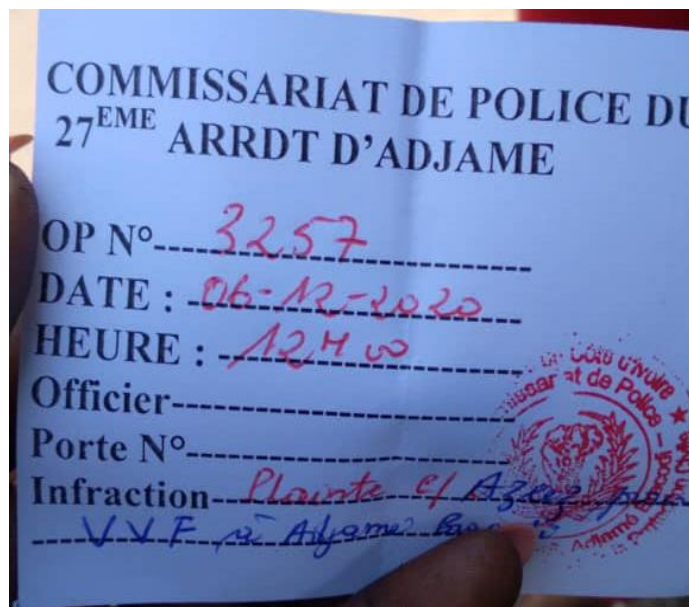 COMMISSARIAT DE POLICE DU
27EME ARRDT D'ADJAME
OP N° 3257
DATE : 06-12-2020
HEURE : 12H00
Officier
Porte N°
Infraction Plainte c/ Azeez pour
VVF à Adjamé
Côte d'Ivoire
de Police